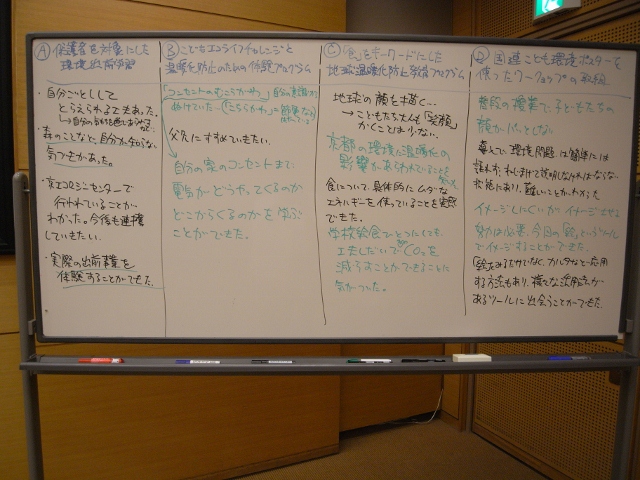 Ⓐ 保護者を対象にした
環境出前学習
・自分ごととして
とらえられる子もあった。
・森のことなど、自分が知らない
気づきがあった。
・京エコロジーセンターで
行われていることが
わかった。今後も連携
していきたい。
・実際の出前事業を
体験することができた。
Ⓑ こどもエコライフチャレンジと
温暖化防止のための体験プログラム
「コンセントのむこうがわ」
父兄にすすめていきたい。
自分の家のコンセントまで
電気がどうやってくるのか
どこからくるのかを学ぶ
ことができた。
Ⓒ 「食」をキーワードにした
地球温暖化防止学習プログラム
地球の顔を描く…
→こどもたちさんも「笑顔」
かくことは少ない。
京都の環境に温暖化の
影響があらわれていることを
食について、具体的にムダな
エネルギーを使っていることを実感
できた。
学校給食でひとつしても、
工夫しだいでCO₂を
減らすことができることに
気がついた。
Ⓓ 国連こども環境ポスターを
使ったワークショップの取組
普段の授業で、子どもたちの
顔がパッとしない
導入で、環境問題は簡単には
語れず、かしこまって説明しなければならない
状態にあり、難しいことがわかった
イメージしにくいがイメージさせる
努力は必要。今日の「絵」というツール
でイメージすることができた。
「絵」をみるだけでなく、カルタなどへ応用
する方法もあり、様々な活用方法が
あるツールに出会うことができた。